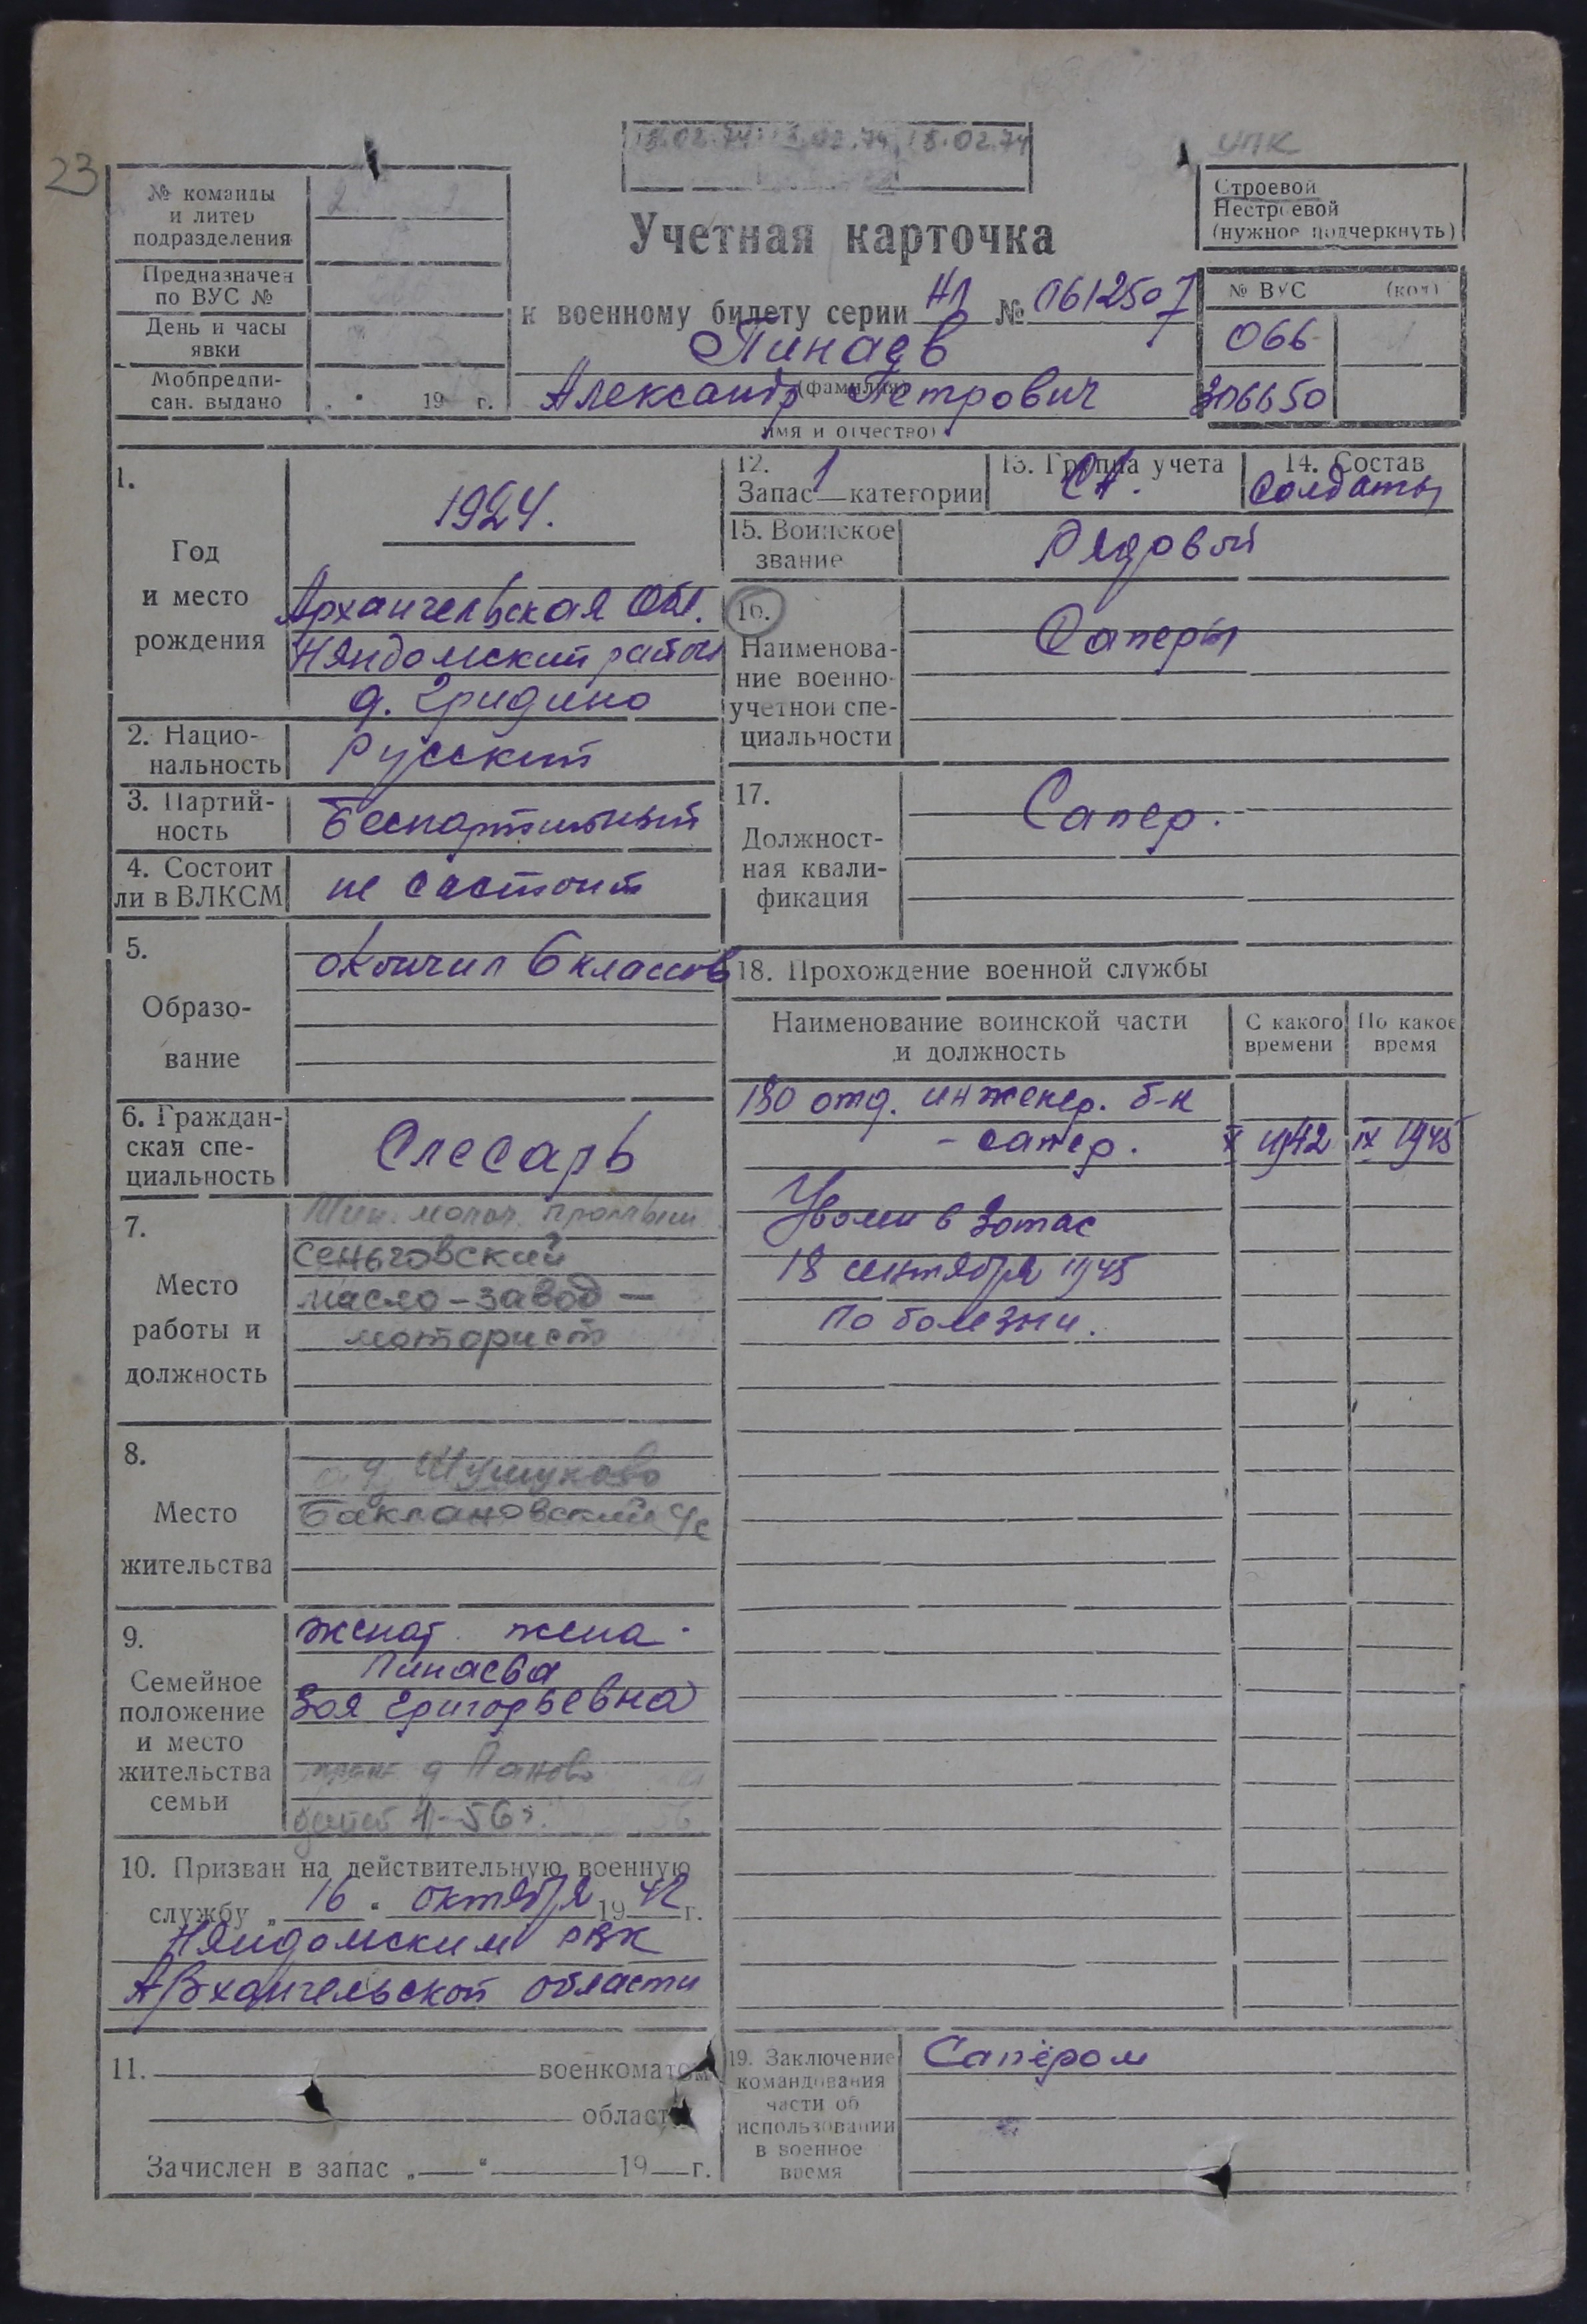 23
18.02.74
18.02.74
УПК
№ команды
и литер
подразделения
Предназначен
по ВУС №
День и часы
явки
Мобпредпи-
сан. выдано
19 г.
Строевой
Нестроевой
(нужное подчеркнуть)
Учетная карточка
к военному билету серии НЛ № 0612507
Пинаев
(фамилия)
Александр Петрович
имя и отчество)
№ ВУС (код)
066
306650
1.
Год
и место
рождения
1924.
Архангельская Обл.
Няндомский район
д. Гридино
2. Нацио-
нальность
Русский
3. Партий-
ность
Беспартийный
4. Состоит
ли в ВЛКСМ
не састоит
5.
Образо-
вание
окончил 6 классов
6. Граждан-
ская спе-
циальность
Слесарь
7.
Место
работы и
должность
Мин. молоч.
Сеньговский
масло-завод —
моторист
8.
Место
жительства
д. Шушуково
Баклановский с/с
9.
Семейное
положение
и место
жительства
семьи
женат. жена.
Пинаева
Зоя Григорьевна
д Паново
детей 1-56г.
10. Призван на действительную военную
службу „ 16 “ октября 19 42 г.
Няндомским РВК
Архангельской области
11. военкоматом
област
Зачислен в запас „ “ 19 г.
12.
Запас 1 категории
13. Группа учета
СА.
14. Состав
Солдаты
15. Воинское
звание
Рядовой
16.
Наименова-
ние военно-
учетной спе-
циальности
Саперы
17.
Должност-
ная квали-
фикация
Сапер.
18. Прохождение военной службы
Наименование воинской части
и должность
С какого
времени
По какое
время
180 отд. инженер. б-н
- сапер. X 1942 IX 1945
Уволен в Запас
18 сентября 1945
по болезни.
19. Заключение
командования
части об
использовании
в военное
время
Сапёром